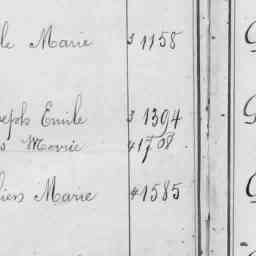 le Marie $ 1158
seph Emile $ 1394
s Marie # 1708
lien Marie # 1585